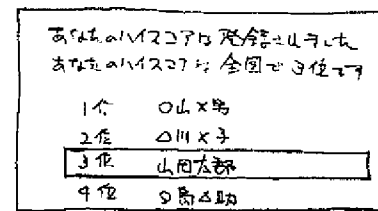 あなたのハイスコアは発録されました
あなたのハイスコアは全国で3位です
1位 〇山×男
2位 △川×子
3位 山岡太郎
4位 〇島△助